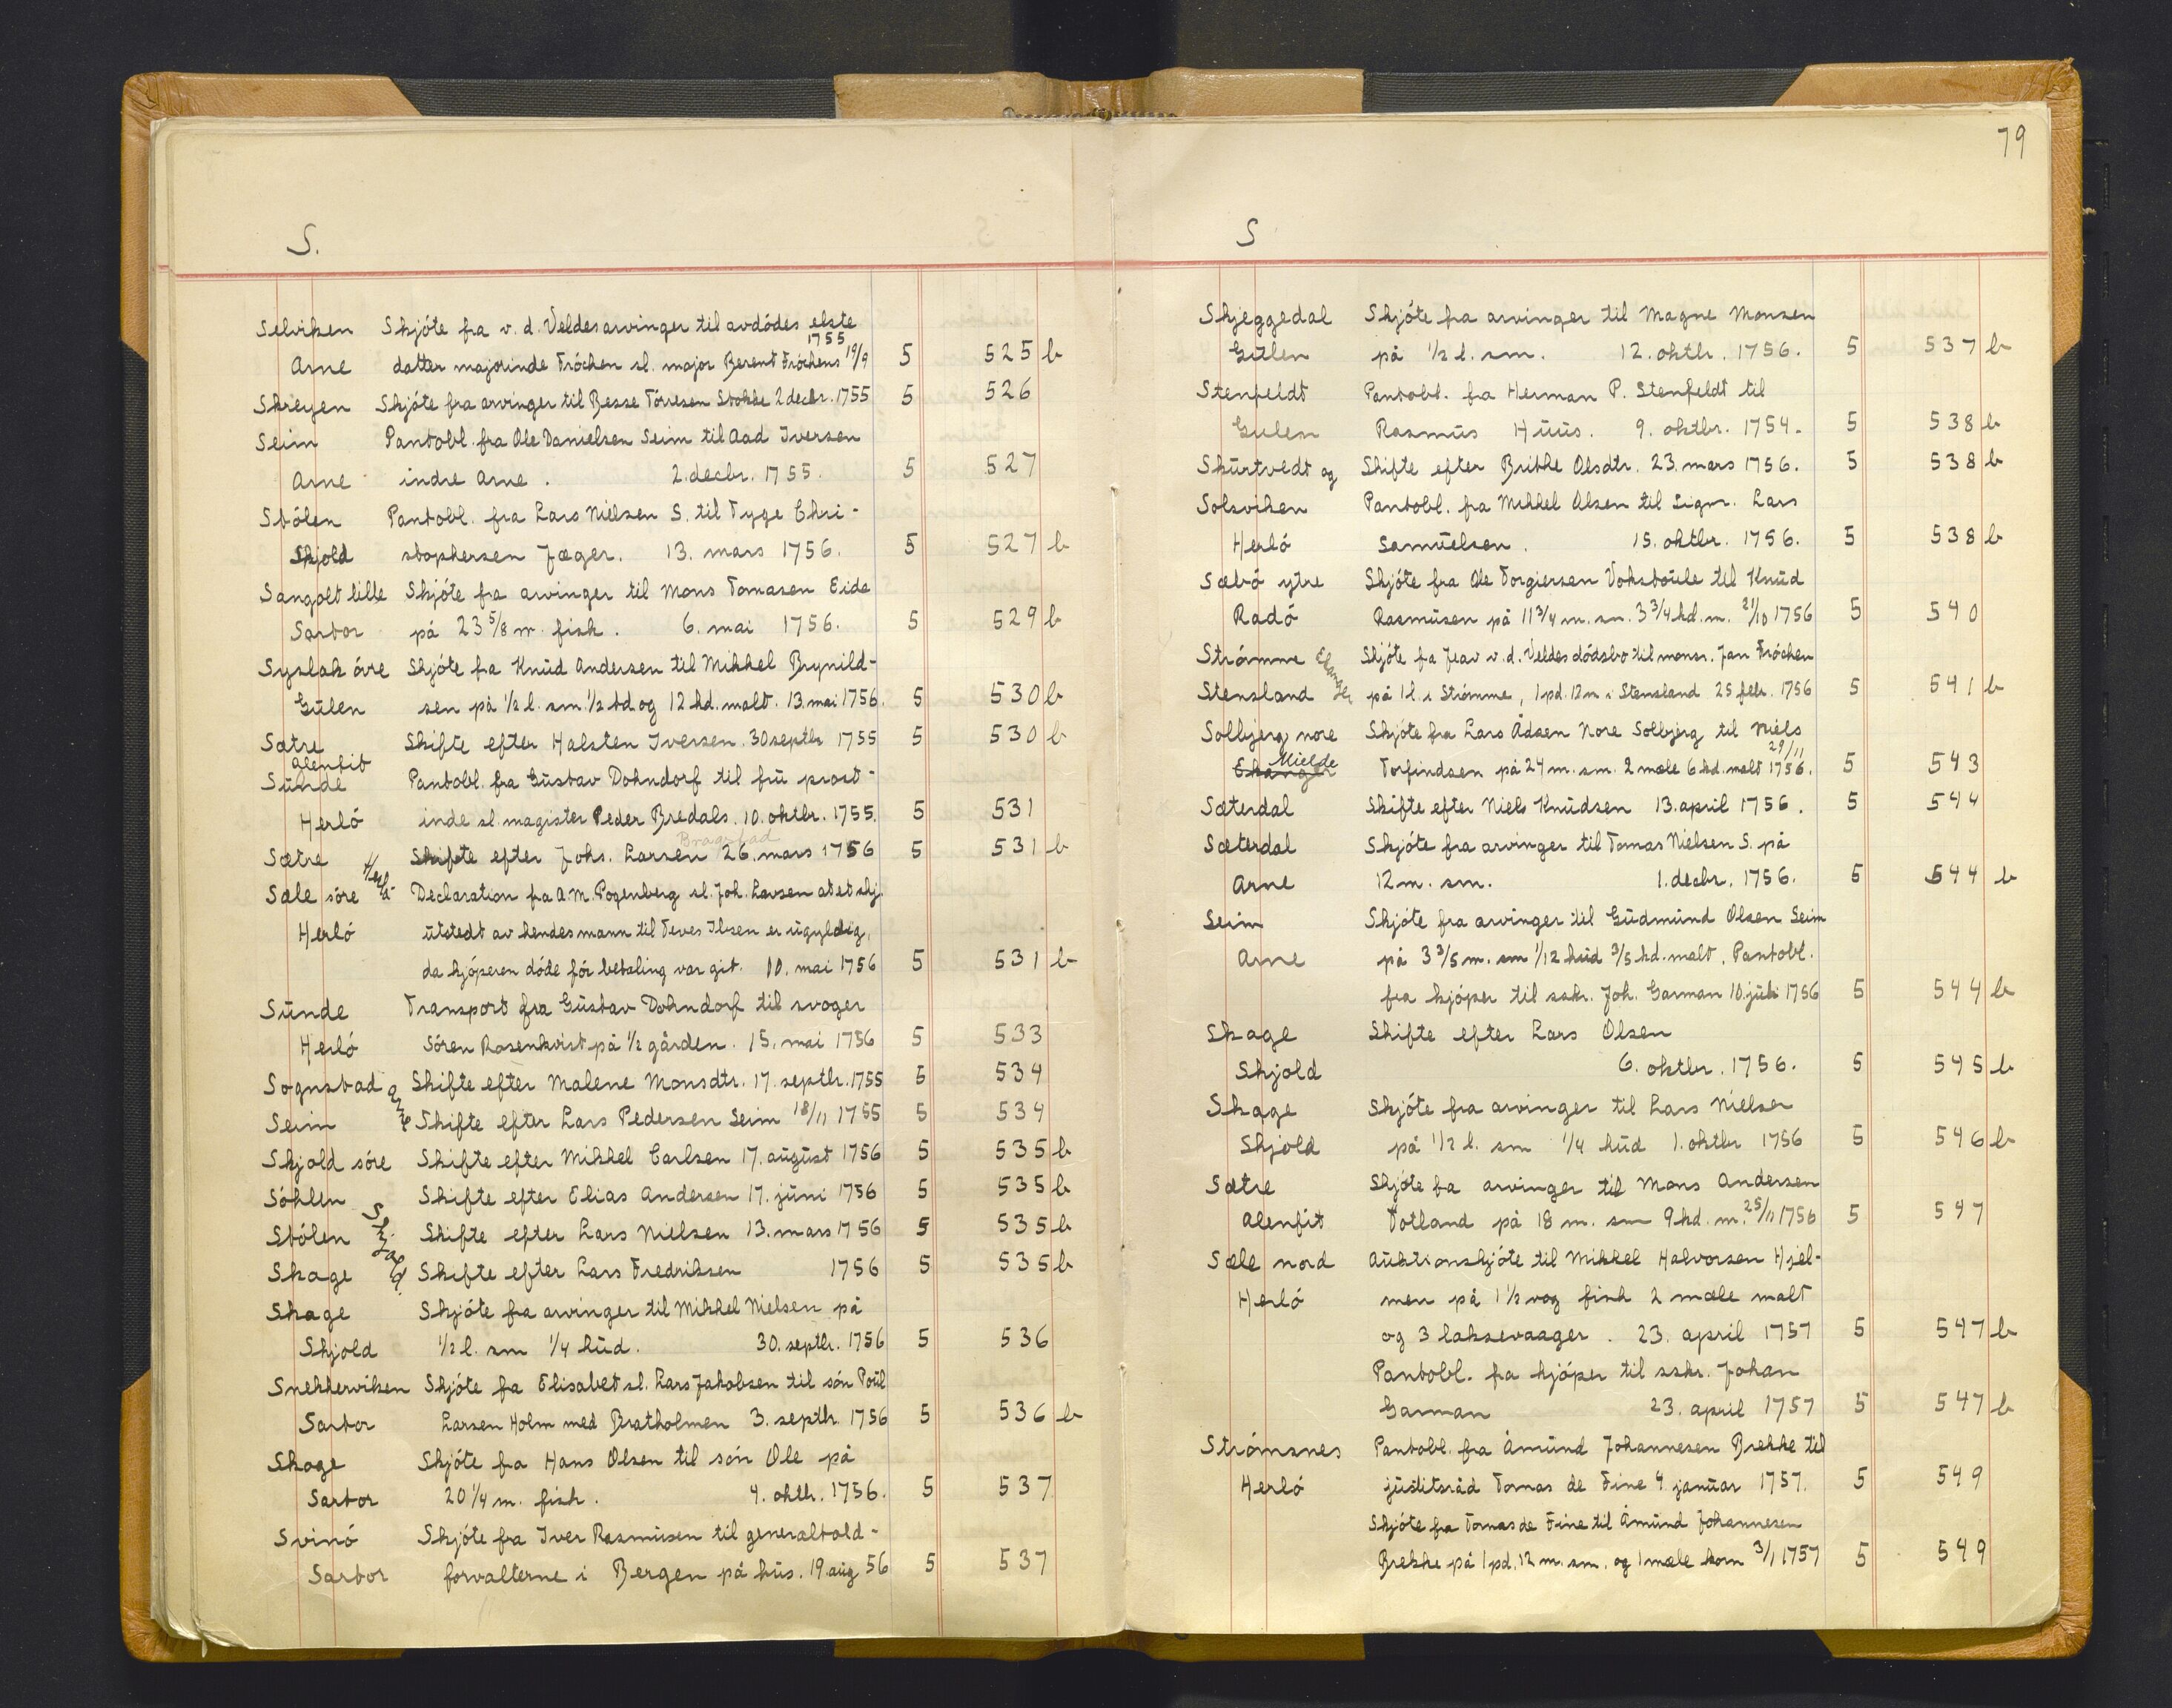 79
S.
Selviken Skjóte fra v. d. Veldes arvinger til avdódes elste
1755
Arne datter majorinde Fróchen sl. major Berent Fróchens 19/9 5 525 b
Skreyen Skjóte fra arvinger til Besse Tórresen Stokke 2 decbr. 1755 5 526
Seim Pantobl. fra Ole Danielsen Seim til Aad Iversen
Arne indre Arne. 2. decbr. 1755. 5 527
Stólen Pantobl. fra Lars Nielsen S. til Tyge Chri-
Skjold stophersen Jæger. 13. mars 1756. 5 527 b
Sangolt lille Skjóte fra arvinger til Mons Tomasen Eide
Sartor på 23 5/8 m. fisk. 6. mai 1756. 5 529 b
Syslak óvre Skjóte fra Knud Andersen til Mikkel Brynild-
Gulen sen på 1/2 l. sm. 1/2 td og 12 kd. malt. 13. mai 1756. 5 530 b
Sætre Skifte efter Halsten Iversen. 30 septbr 1755 5 530 b
Alenfit
Sunde Pantobl. fra Gustav Dohndorf til fru prost-
Herló inde sl. magister Peder Bredals. 10. oktbr. 1755. 5 531
Bragstad
Sætre Herló Skifte efter Johs. Larsen 26. mars 1756 5 531 b
Sæle sóre Declaration fra A. M. Pogenberg sl. Joh. Larsen at et skj.
Herló utstedt av hendes mann til Teves Ilsen er ugyldig,
da kjóperen dóde fór betaling var git. 10. mai 1756 5 531 b
Sunde Transport fra Gustav Dohndorf til svoger
Herló Sóren Rosenkvist på 1/2 gården. 15. mai 1756 5 533
Sognstad Arne Skifte efter Malene Monsdtr. 17. septbr. 1755 5 534
Seim Skifte efter Lars Pedersen Seim 18/11 1755 5 534
Skjold sóre Skifte efter Mikkel Carlsen 17. august 1756 5 535 b
Sóhlen Skifte efter Elias Andersen 17. juni 1756 5 535 b
Stólen Skjold Skifte efter Lars Nielsen 13. mars 1756 5 535 b
Skage Skifte efter Lars Fredriksen 1756 5 535 b
Skage Skjóte fra arvinger til Mikkel Nielsen på
Skjold 1/2 l. sm 1/4 hud. 30. septbr. 1756 5 536
Snekkerviken Skjóte fra Elisabet sl. Lars Jakobsen til són Poul
Sartor Larsen Holm med Bratholmen 3. septbr. 1756 5 536 b
Skage Skjóte fra Hans Olsen til són Ole på
Sartor 20 1/4 m. fisk. 4. oktbr. 1756. 5 537
Svinó Skjóte fra Iver Rasmusen til generaltold-
Sartor forvalterne i Bergen på hus. 19. aug 56 5 537
S
Skjeggedal Skjóte fra arvinger til Magne Monsen
Gulen på 1/2 l. sm. 12. oktbr. 1756. 5 537 b
Stenfeldt Pantobl. fra Herman P. Stenfeldt til
Gulen Rasmus Huus. 9. oktbr. 1754. 5 538 b
Skurtvedt og Skifte efter Brithe Olsdtr. 23. mars 1756. 5 538 b
Solsviken Pantobl. fra Mikkel Olsen til Signr. Lars
Herló Samuelsen. 15. oktbr. 1756. 5 538 b
Sæbó ytre Skjóte fra Ole Torgiersen Vokstoule til Knud
Radó Rasmusen på 11 3/4 m. sm. 3 3/4 kd. m. 21/10 1756 5 540
Strómme Skjóte fra Jeav v. d. Veldes dódsbo til monsr. Jan Fróchen
Stensland på 1 l. i Strómme, 1 pd. 12 m i Stensland 25 febr. 1756 5 541 b
Solbjerg nore Skjóte fra Lars Ådsen Nore Solbjerg til Niels
Mielde 29/11
Ekanger Torfindsen på 24 m. sm. 2 mæle 6 kd. malt 1756. 5 543
Sæterdal Skifte efter Niels Knudsen 13. april 1756. 5 544
Sæterdal Skjóte fra arvinger til Tomas Nielsen S. på
Arne 12 m. sm. 1. decbr. 1756. 5 544 b
Seim Skjóte fra arvinger til Gudmund Olsen Seim
Arne på 3 3/5 m. sm 1/12 hud 3/5 kd. malt. Pantobl.
fra kjóper til sskr. Joh. Garman 10. juli 1756 5 544 b
Skage Skifte efter Lars Olsen
Skjold 6. oktbr. 1756. 5 545 b
Skage Skjóte fra arvinger til Lars Nielsen
Skjold på 1/2 l. sm 1/4 hud 1. oktbr 1756 5 546 b
Sætre Skjóte fra arvinger til Mons Andersen
Alenfit Totland på 18 m. sm 9 kd. m. 25/11 1756 5 547
Sæle nord Auktionskjóte til Mikkel Halvorsen Hjel-
Herló men på 1 1/2 vog fisk 2 mæle malt
og 3 laksevaager. 23. april 1757 5 547 b
Pantobl. fra kjóper til sskr. Johan
Garman 23. april 1757 5 547 b
Strómsnes Pantobl. fra Åmund Johannesen Brekke til
Herló justitsråd Tomas de Fine 4 januar 1757. 5 549
Skjóte fra Tomas de Fine til Åmund Johannesen
Brekke på 1 pd. 12 m. sm. og 1 mæle korn 3/1 1757 5 549